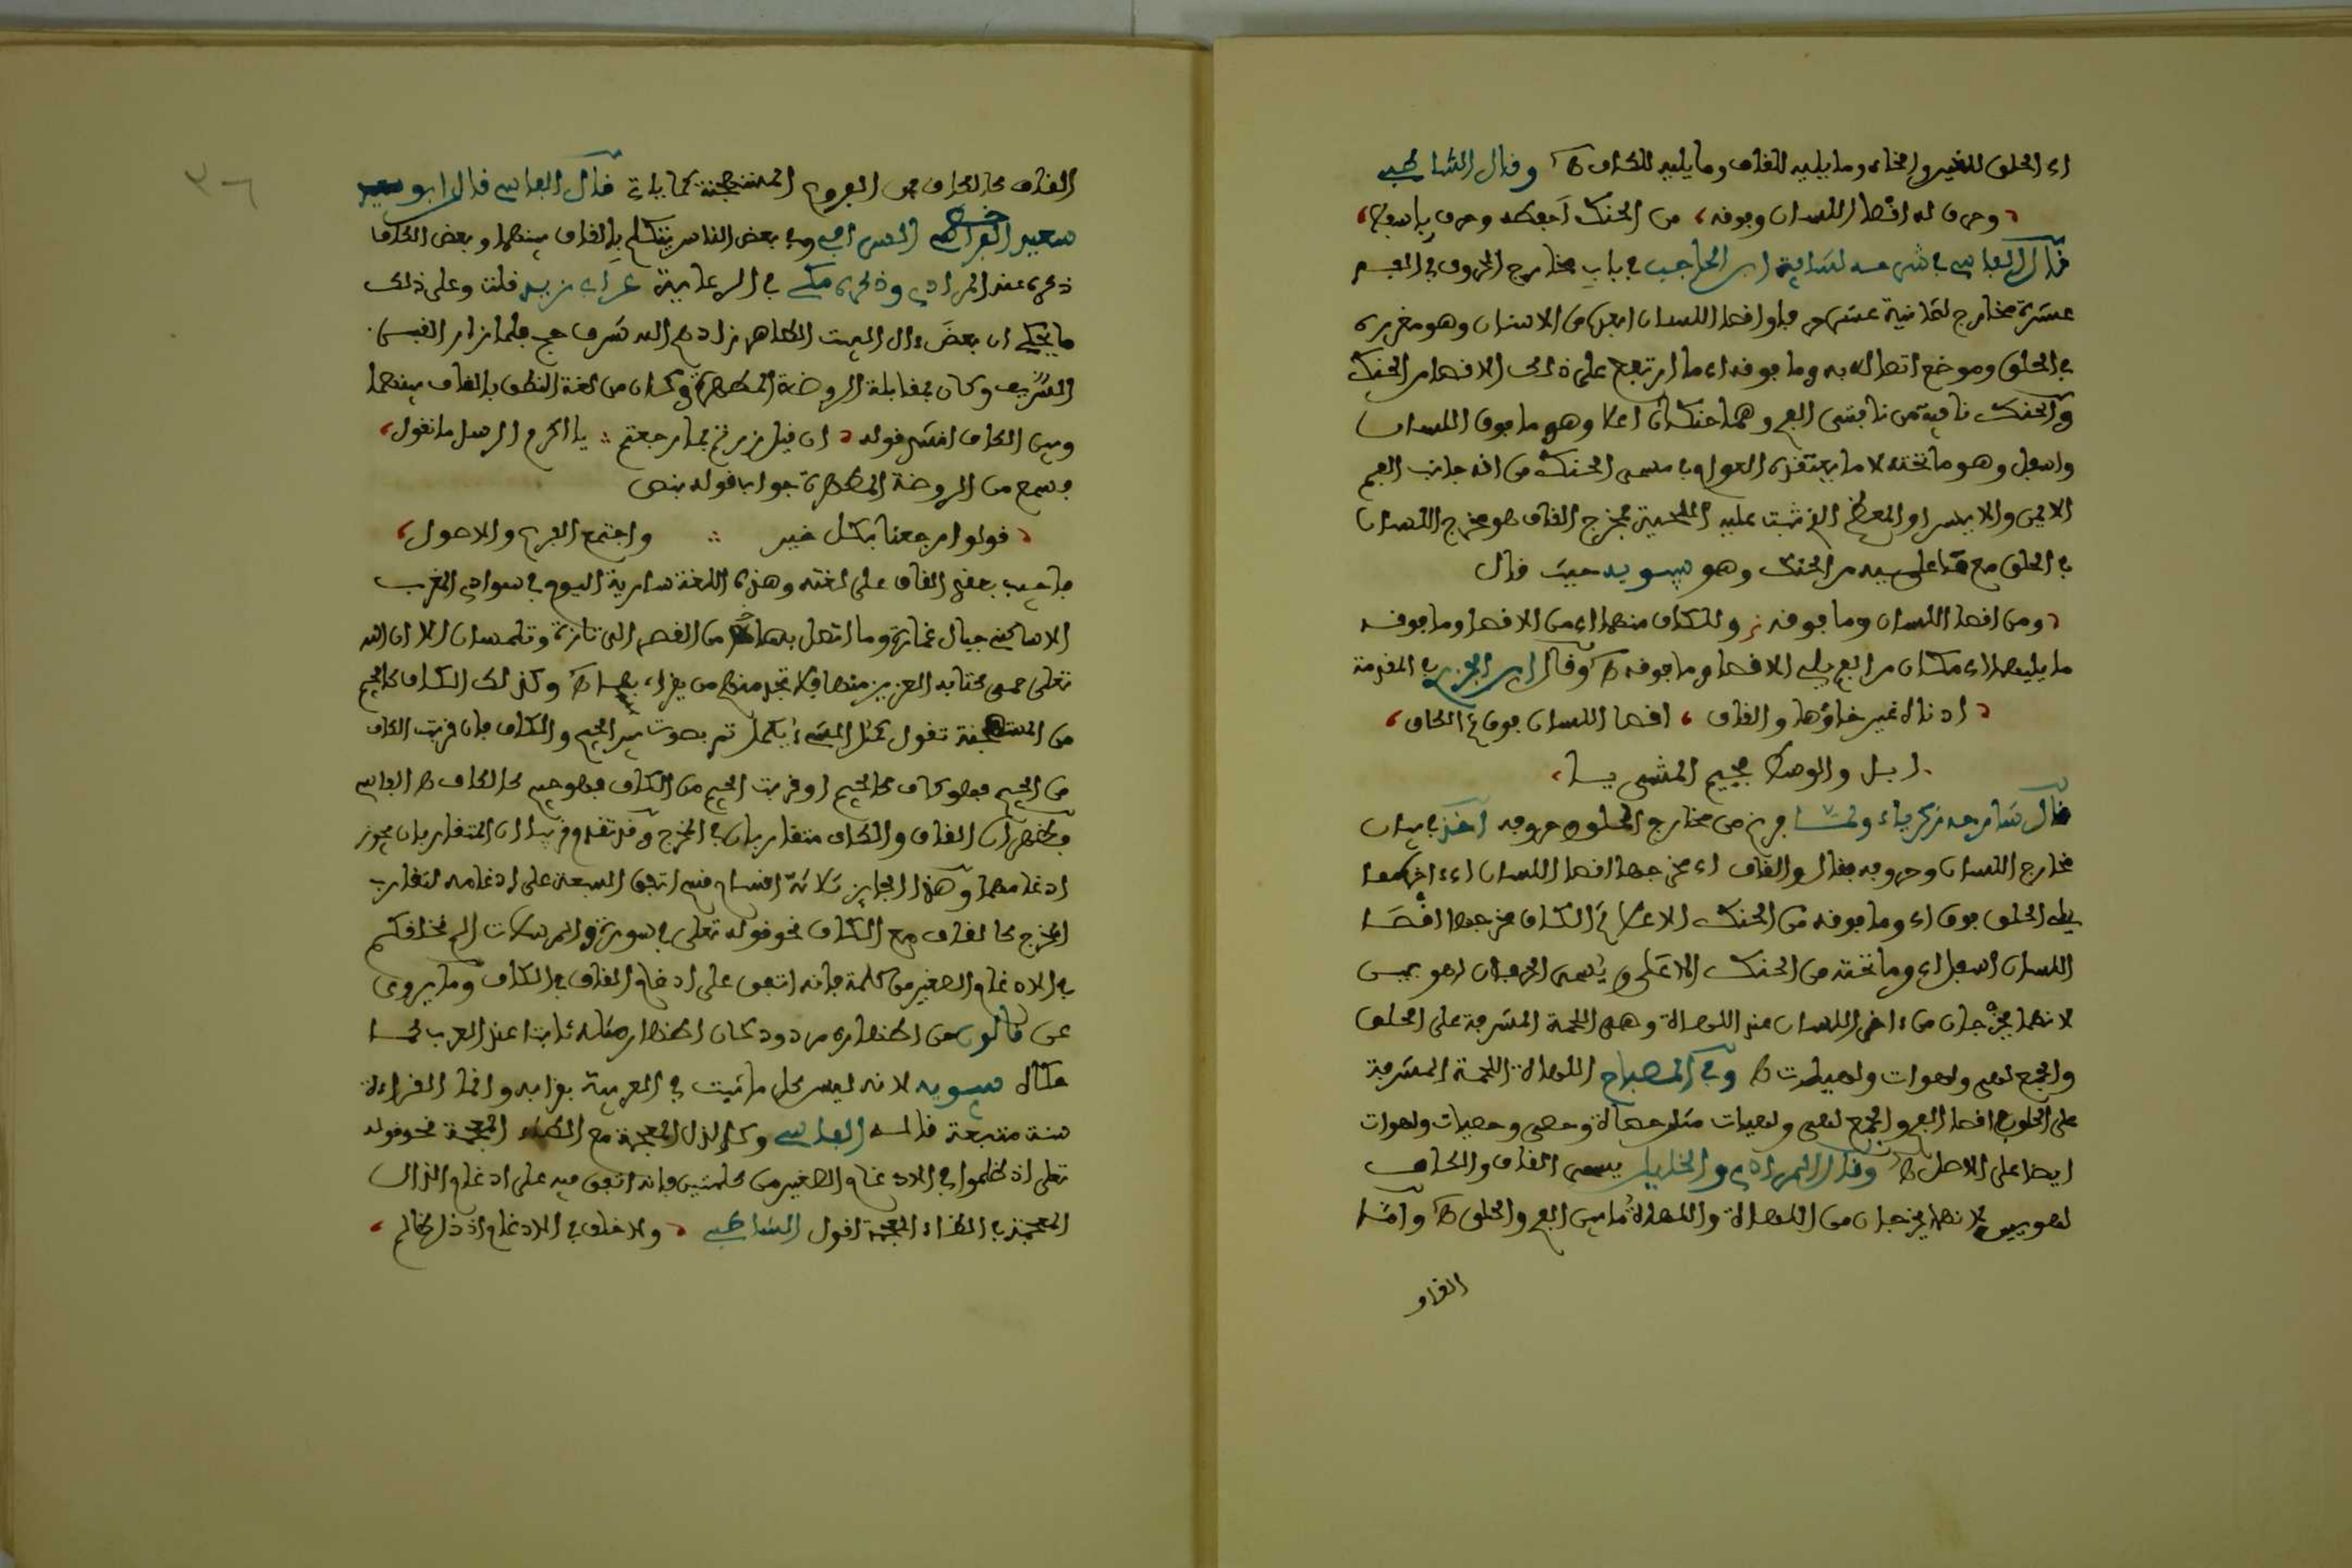 اي الحلق للغين والخاء وما يليه للقاف وما يليه للكاف ه وقال الشاطبي
وحرف له اقصا اللسان وفوقه، من الحنك احفظه وحرف باسفلا،
قال الفاسي في شرحه لشافية ابن الحاجب في باب مخارج الحروف في الفم
عشرة مخارج لثمانية عشر حرفا واقصا اللسان ابعده من الاسنان وهو مغرزه
في الحلق وموضع اتصاله به وما فوقه اي ما ارتفع على ذلك الاقصا من الحنك
والحنك ناحية من ناحيتي الفم وهما حنكان اعلا وهو ما فوق اللسان
واسفل وهو ما تحته لا ما يعتقده العوام في مسمى الحنك من انه جانب الفم
الايمن والايسر او العظم الذي نبتت عليه اللحية فمخرج القاف هو مخرج اللسان
في الحلق مع من الحنك وهو سيبويه حيث قال
ومن اقصا اللسان وما فوقه وللكاف منهما اي من الاقصا وما فوقه
ما يليهما اي مكان من الفم يلي الاقصا وما فوقه ه وقال ابن الجزري في المقدمة
ادناه غين خاؤها والقاف، اقصا اللسان فوق ثم الكاف،
اسفل والوسط فجيم الشين يا،
قال شارحه زكرياء ولما فرغ من مخارج الحلق وحروفه اخذ في بيان
مخارج اللسان وحروفه فقال والقاف اي مخرجها اقصا اللسان اي اخره مما
يلي الحلق فوق اي وما فوقه من الحنك الاعلا ثم الكاف مخرجها اقصا
اللسان اسفل اي وما تحته من الحنك الاعلى ويسمى الحرفان لهويين
لانهما يخرجان من اخر اللسان عند اللهاة وهي اللحمة المشرفة على الحلق
والجمع لهى ولهوات ولهيات ه وفي المصباح اللهاة اللحمة المشرفة
على الحلق في اقصا الفم والجمع لهى ولهيات مثل حصاة وحصى وحصيات ولهوات
ايضا على الاصل ه وقال المرادي والخليل يسمى القاف والكاف
لهويين لانهما يخرجان من اللهاة واللهاة ما بين الفم والحلق ه واما
القاف
٣٦
القاف كالكاف فمن الفروع المستهجنة كما ياتي قال الفاسي قال ابو سعيد
سعيد السيرافي وفي بعض الناس يتكلم بالقاف بينهما وبعض الكاف
ذكره عنه المرادي وذكره مكي في الرعاية عن ابن دريد قلت وعلى ذلك
ما يحكى ان بعض ءال البيت الطاهر زادهم الله شرفا حج فلما زار القبر
الشريف وكان بمقابلة الروضة المطهرة وكان من لغته النطق بالقاف بينهما
وبين الكاف انشد قوله ان قيل زرتم بما رجعتم ∴ يا اكرم الرسل ما نقول،
فسمع من الروضة المطهرة جوابا قوله بنص
قولوا رجعنا بكل خير ∴ واجتمع الفرع والاصول،
فاجيب بعقد القاف على لغته وهذه اللغة سارية اليوم في سوادي المغرب
الا ساكني جبال غمارة وما اتصل بها من القصر الى تازة وتلمسان الا ان الله
تعلى حمى كتابه العزيز منها فلا تجد منهم من يقرا بها ه وكذلك الكاف كالجيم
من المستهجنة تقول كمل الشيء يكمل ثم بصوت بين الجيم والكاف فان قربت الكاف
من الجيم فهو كاف كالجيم او قربت الجيم من الكاف فهو جيم كالكاف ه الفاسي
فظهر ان القاف والكاف متقاربان في المخرج وقد تقدم قريبا ان المتقاربان يجوز
ادغامهما وهذا الجايز ثلاثة اقسام قسم اتفق السبعة على ادغامه لتقارب
المخرج كالقاف مع الكاف نحو قوله تعلى في سورة والمرسلات الم نخلقكم
في الادغام الصغير من كلمة فانه اتفق على ادغام القاف في الكاف وما يروى
عن قالون من اظهاره مردود كان اظهار مثله ثابتا عند العرب كما
قال سيبويه لانه ليس كل ما ثبت في العربية يقرا به وانما القراءة
سنة متبعة قاله الفاسي وكالذال المعجمة مع الظاء المعجمة نحو قوله
تعلى اذ ظلموا في الادغام الصغير من كلمتين فانه اتفق فيه على ادغام الذال
المعجمة في الظاء المعجمة لقول الشاطبي ولا خلف في الادغام اذ ذل ظالم،